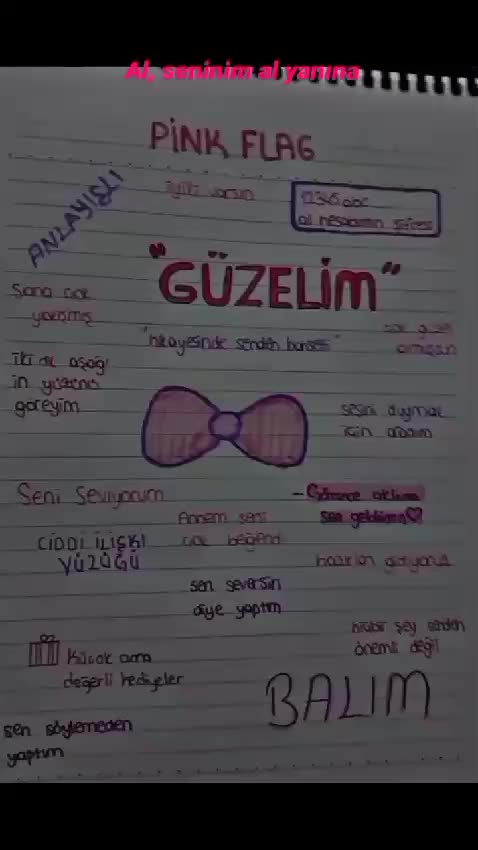 Al, seninim al yanına
PİNK FLAG
ANLAYIŞLI
iyiki varsın
al hesabımın şifresi
"GÜZELİM"
Sana çok
yakışmış
"hikayesinde senden bahsetti"
çok güzel
olmuşsun
iki dk aşağı
in yüzünü
göreyim
sesini duymak
için aradım
Seni Seviyorum
- Görünce aklıma
sen geldin♡
Annem seni
çok beğendi
CİDDİ İLİŞKİ
YÜZÜĞÜ
hazırlan geliyorum
sen seversin
diye yaptım
hiçbir şey senden
önemli değil
Küçük ama
değerli hediyeler
BALIM
sen söylemeden
yaptım